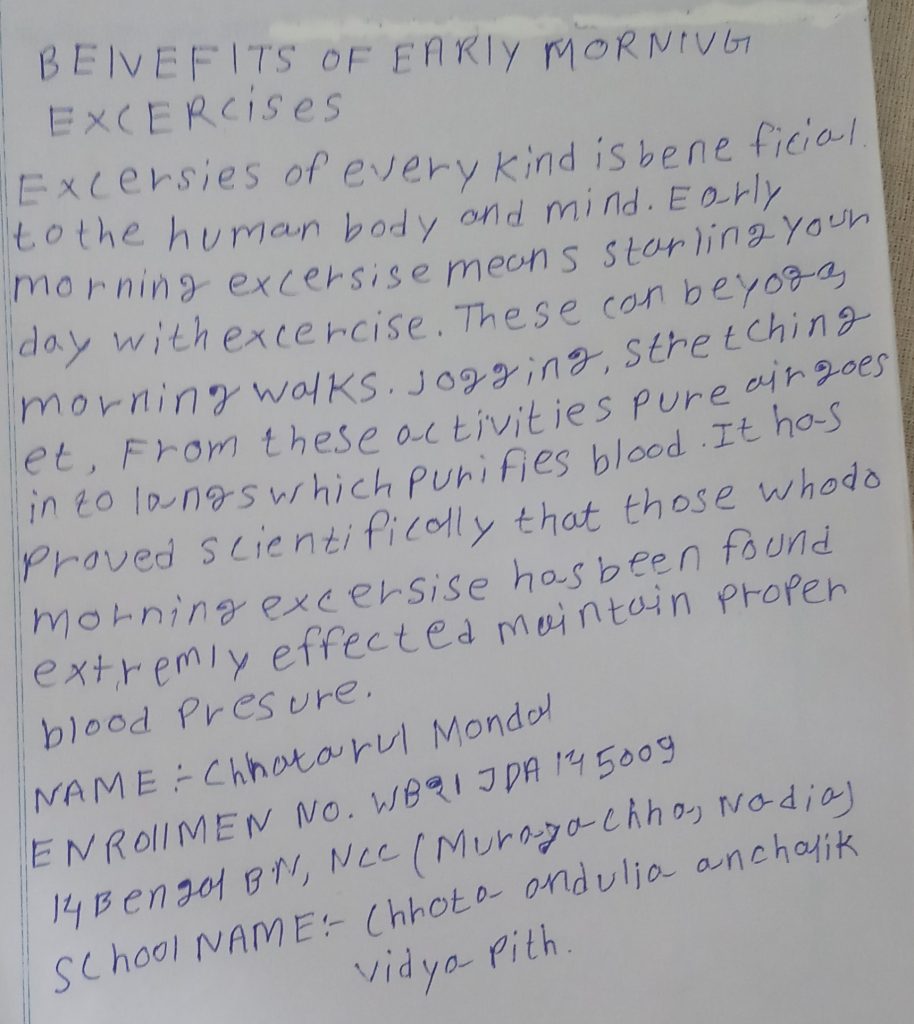 BENEFITS OF EARlY MORNING
EXCERcises
Excersies of every kind is bene ficial
to the human body and mind. Early
morning excersise means starling your
day with excercise. These can be yoga,
morning walks. Jogging, stretching
et, From these activities pure air goes
in to laungs which purifies blood. It has
Proved scientifically that those who do
morning excersise has been found
extremly effected maintain proper
blood Presure.
NAME :- Chhatarul Mondal
ENROllMEN NO. WB21 JDA 145009
14 Bengal BN, NCC (Muragachha, Nadia)
School NAME:- Chhota andulia anchalik
vidya Pith.